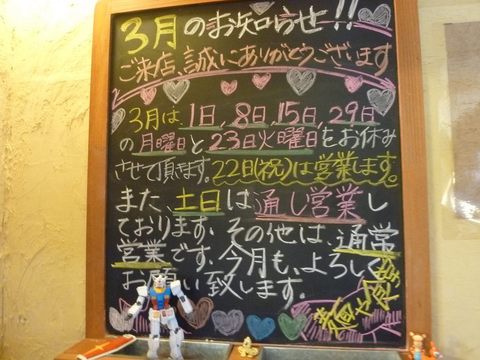 3月のお知らせ!!
ご来店、誠にありがとうございます
3月は1日、8日、15日、29日
の月曜日と23日火曜日をお休み
させて頂きます。22日(祝)は営業します。
また、土日は通し営業し
ております、その他は、通常
営業です、今月も、よろしく
お願い致します。